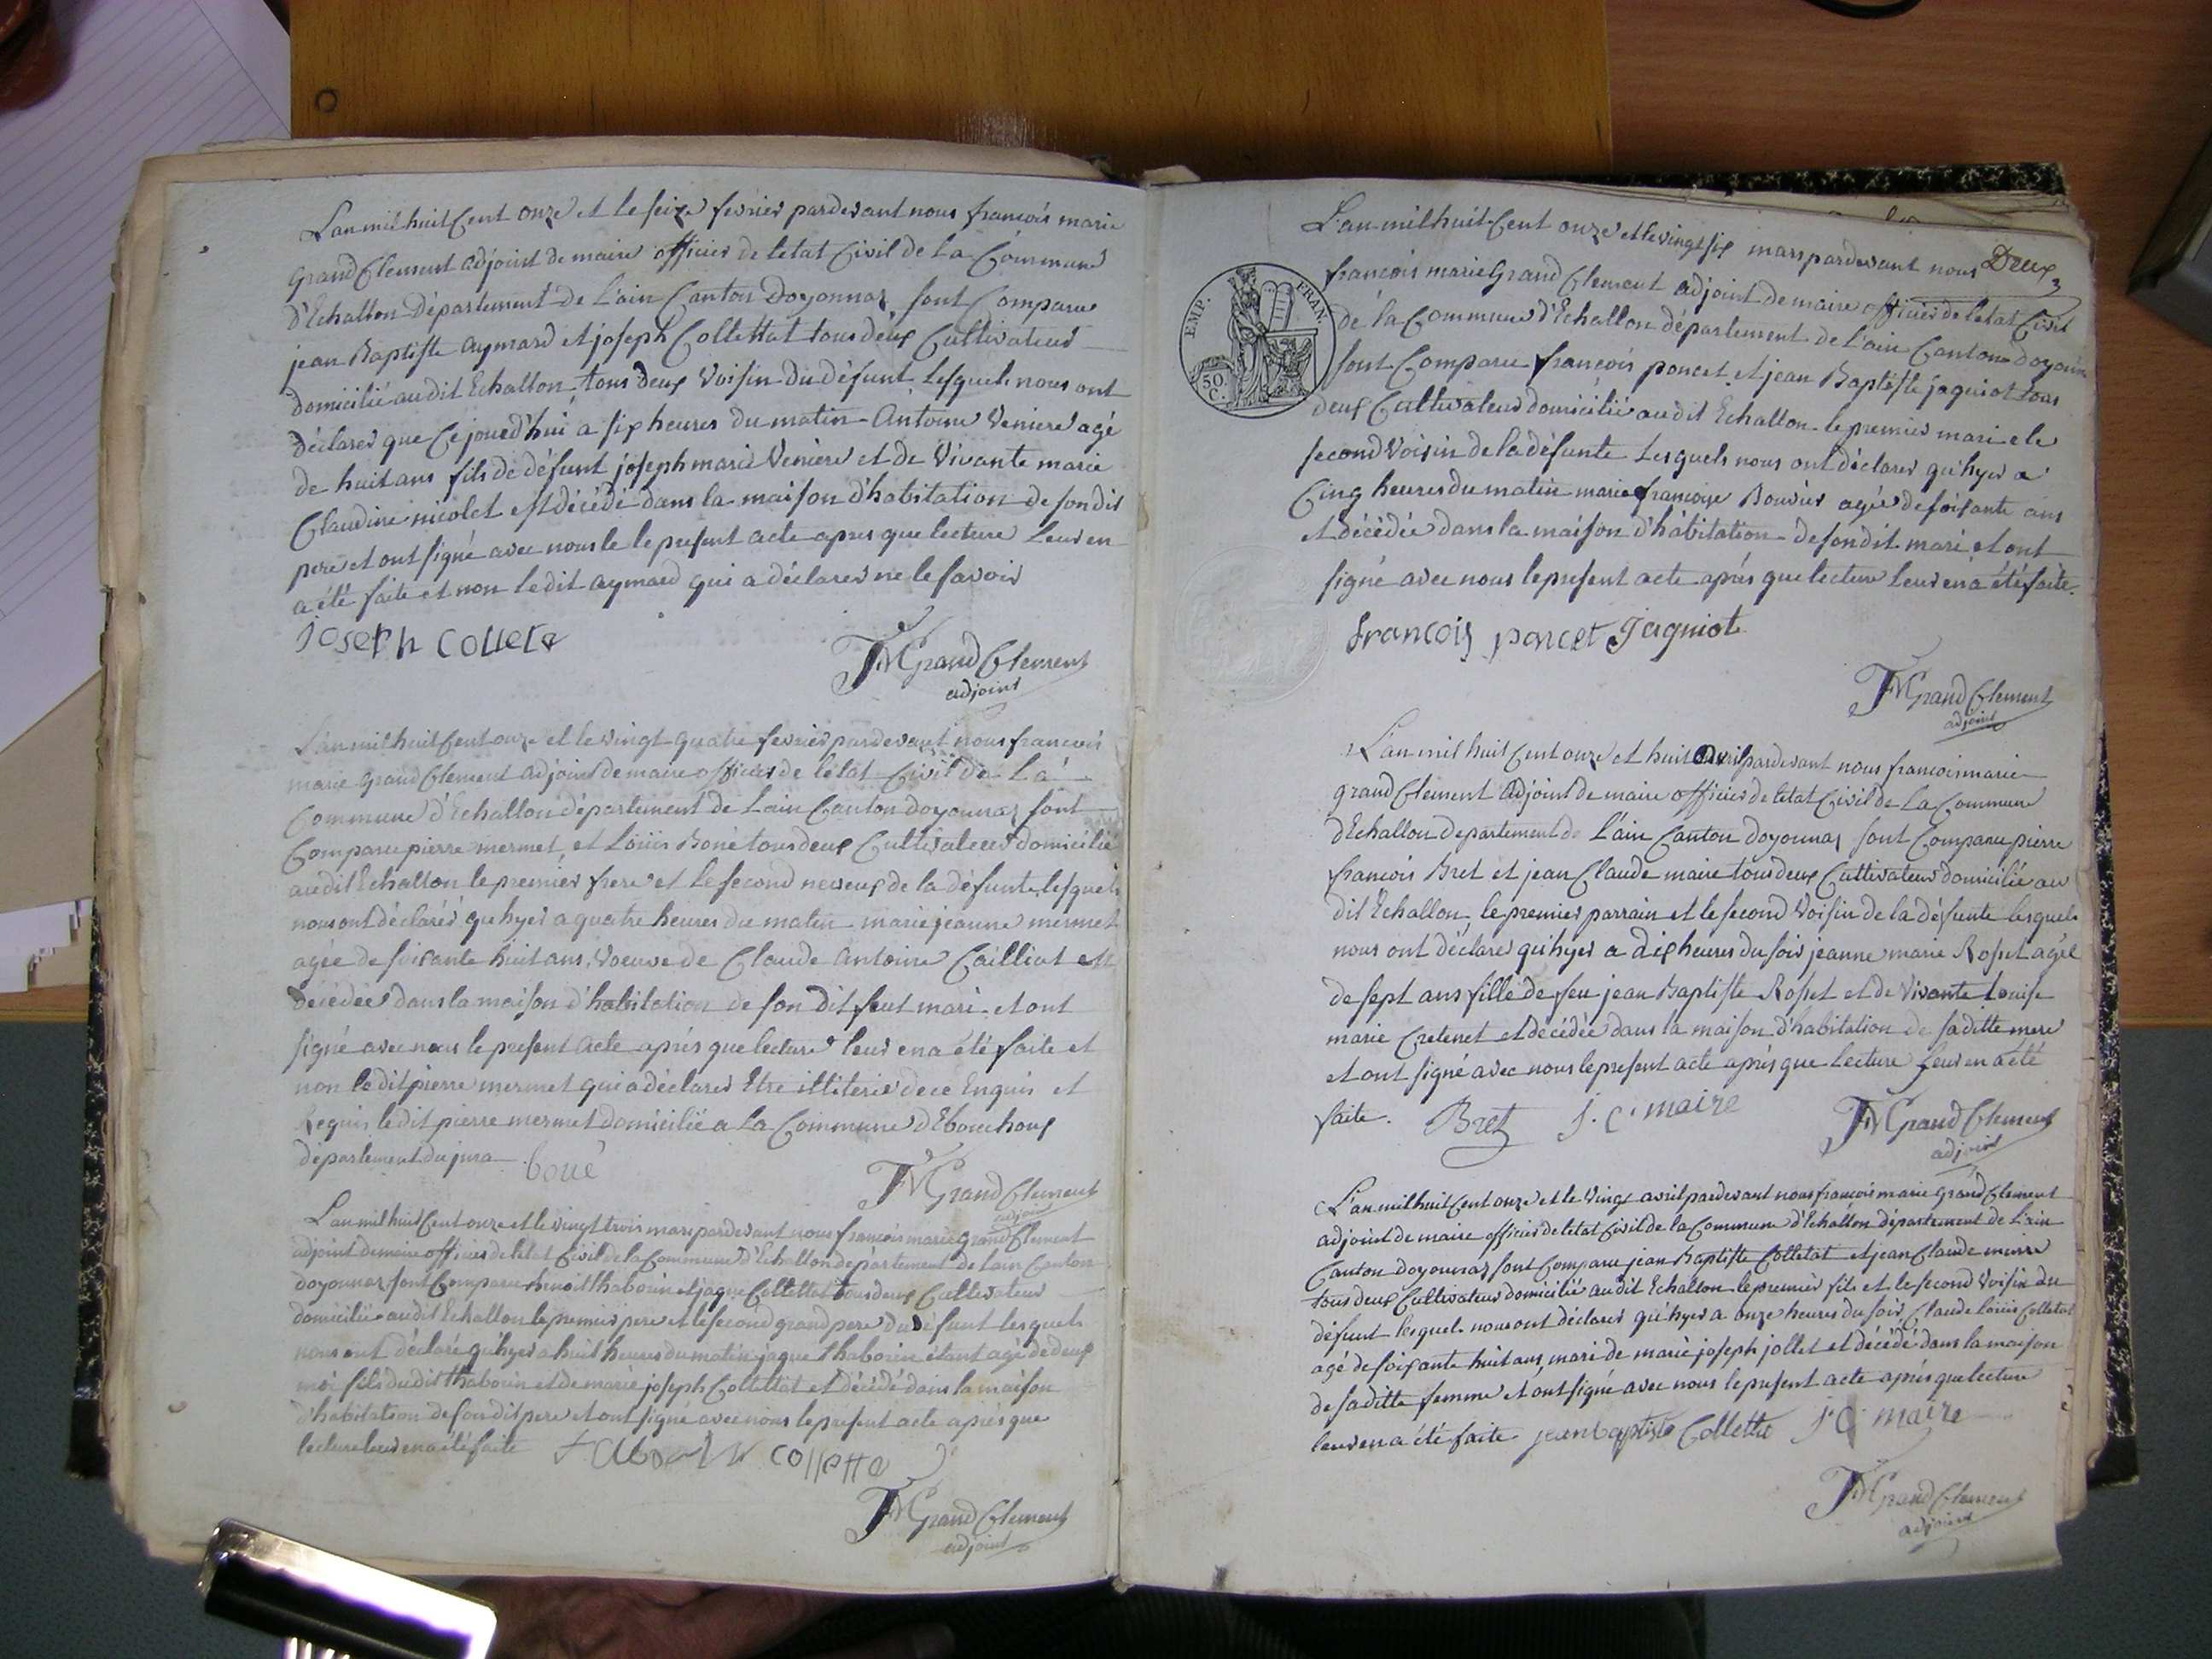 L'an mil huit Cent onze et le seize fevrier pardevant nous francois marie
grand Clement adjoint de maire officier de letat Civil de La Commune
d'Echallon Département de L'ain Canton Doyonnaz sont Comparu
jean Baptiste aymard et joseph Collettat tous deux Cultivateur
domicilié audit Echallon, tous deux Voisin du défunt Lesquels nous ont
déclarer que Cejourd'hui a six heures du matin Antoine Veniere agé
de huit ans fils de défunt joseph marie Véniere et de Vivante marie
Claudine nicolet est décédé dans la maison d'habitation de son dit
pere et ont signé avec nous le le present acte apres que lecture Leur en
a été faite et non ledit aymard qui a déclarer ne le savoir
joseph collete
FM Grand Clement
adjoint
L'an mil huit Cent onze et le vingt quatre fevrier pardevant nous francois
marie grand Clement adjoint de maire officier de letat Civil de La
Commune d'Echallon département de Lain Canton doyonnaz sont
Comparu pierre mermet et Louis Boné tous deux Cultivateur domicilié
audit Echallon le premier frere et le second neveux de la défunte lesquels
nous ont déclarér qu'hyer a quatre heures du matin marie jeanne mermet
agée de soixante huit ans, Voeuve de Claude Antoine Cailliat est
décédée dans la maison d'habitation de son dit feut mari et ont
signé avec nous le present acte aprés que lecture leur en a été faite et
non ledit pierre mermet qui a déclarer Etre illiterié de ce Enquis et
Requis ledit pierre mermet domicilié a La Commune d'Ebouchoux
département du jura boné
FM Grand Clement
adjoint
L'an mil huit Cent onze et le vingt trois mars pardevant nous francois marie grand Clement
adjoint de maire officier de letat Civil de la Commune d'Echallon département de Lain Canton
doyonnaz sont Comparu benoit thaborin et jaque Collettat tous deux Cultivateur
domicilié audit Echallon le premier pere et le second grand pere du défunt lesquels
nous ont déclaré qu'hyer a huit heures du matin jaque thaborin étant agé de deux
moi fils dudit thaborin et de marie joseph Collettat et décédé dans la maison
d'habitation de son dit pere et ont signé avec nous le present acte aprés que
lecture leur en a été faite collette
FM Grand Clement
adjoint
Deux
L'an mil huit Cent onze et le vingt six mars pardevant nous
francois marie Grand Clement adjoint de maire officier de letat Civil
de la Commune d'Echallon département de L'ain Canton doyonn
sont Comparu francois poncet et jean Baptiste jaquiot tous
deux Cultivateur domicilié audit Echallon le premier mari et le
second Voisin de la défunte Lesquels nous ont déclarer qu'hyer a
Cinq heures du matin marie francoise Bouvier agée de soixante ans
et décédée dans la maison d'habitation de son dit mari et ont
signé avec nous le present acte aprés que lecture leur en a été faite.
EMP. FRAN.
50.
C.
francois poncet jaquiot
FM Grand Clement
adjoint
L'an mil huit Cent onze et huit avril pardevant nous francois marie
grand Clement Adjoint de maire officier de letat Civil de La Commune
d'Echallon departement de L'ain Canton doyonnaz sont Comparu pierre
francois Bret et jean Claude maire tous deux Cultivateur domicilié au
dit Echallon, le premier parrain et le second Voisin de la défunte lesquels
nous ont déclarer qu'hyer a dix heures du soir jeanne marie Rosset agée
de sept ans fille de feu jean Baptiste Rosset et de Vivante Louise
marie Cretenet et décédée dans la maison d'habitation de saditte mere
et ont signé avec nous le present acte aprés que Lecture leur en a été
faite. Bret j. c. maire
FM Grand Clement
adjoint
L'an mil huit Cent onze et le Vingt avril pardevant nous francois marie grand Clement
adjoint de maire officier de letat Civil de la Commune d'Echallon département de L'ain
Canton doyonnaz sont Comparu jean Baptiste Colletat et jean Claude maire
tous deux Cultivateur domicilié audit Echallon le premier fils et le second Voisin du
défunt lesquels nous ont déclarer qu'hyer a onze heures du soir Claude Louis Colletat
agé de soixante huit ans, mari de marie joseph jollet et décédé dans la maison
de saditte femme et ont signé avec nous le present acte aprés que lecture
leur en a été faite jean baptiste Collettat j. c. maire
FM Grand Clement
adjoint